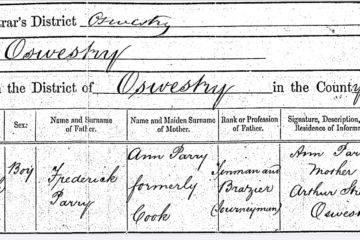 trar's District Oswestry
Oswestry
n the District of Oswestry in the County
Sex: Name and Surname of Father. Name and Maiden Surname of Mother. Rank or Profession of Father. Signature, Description, Residence of Inform
Boy
Frederick
Parry
Ann Parry
formerly
Cook
Tinman and
Brazier
(Journeyman)
Ann Par
Mother
Arthur St
Oswest